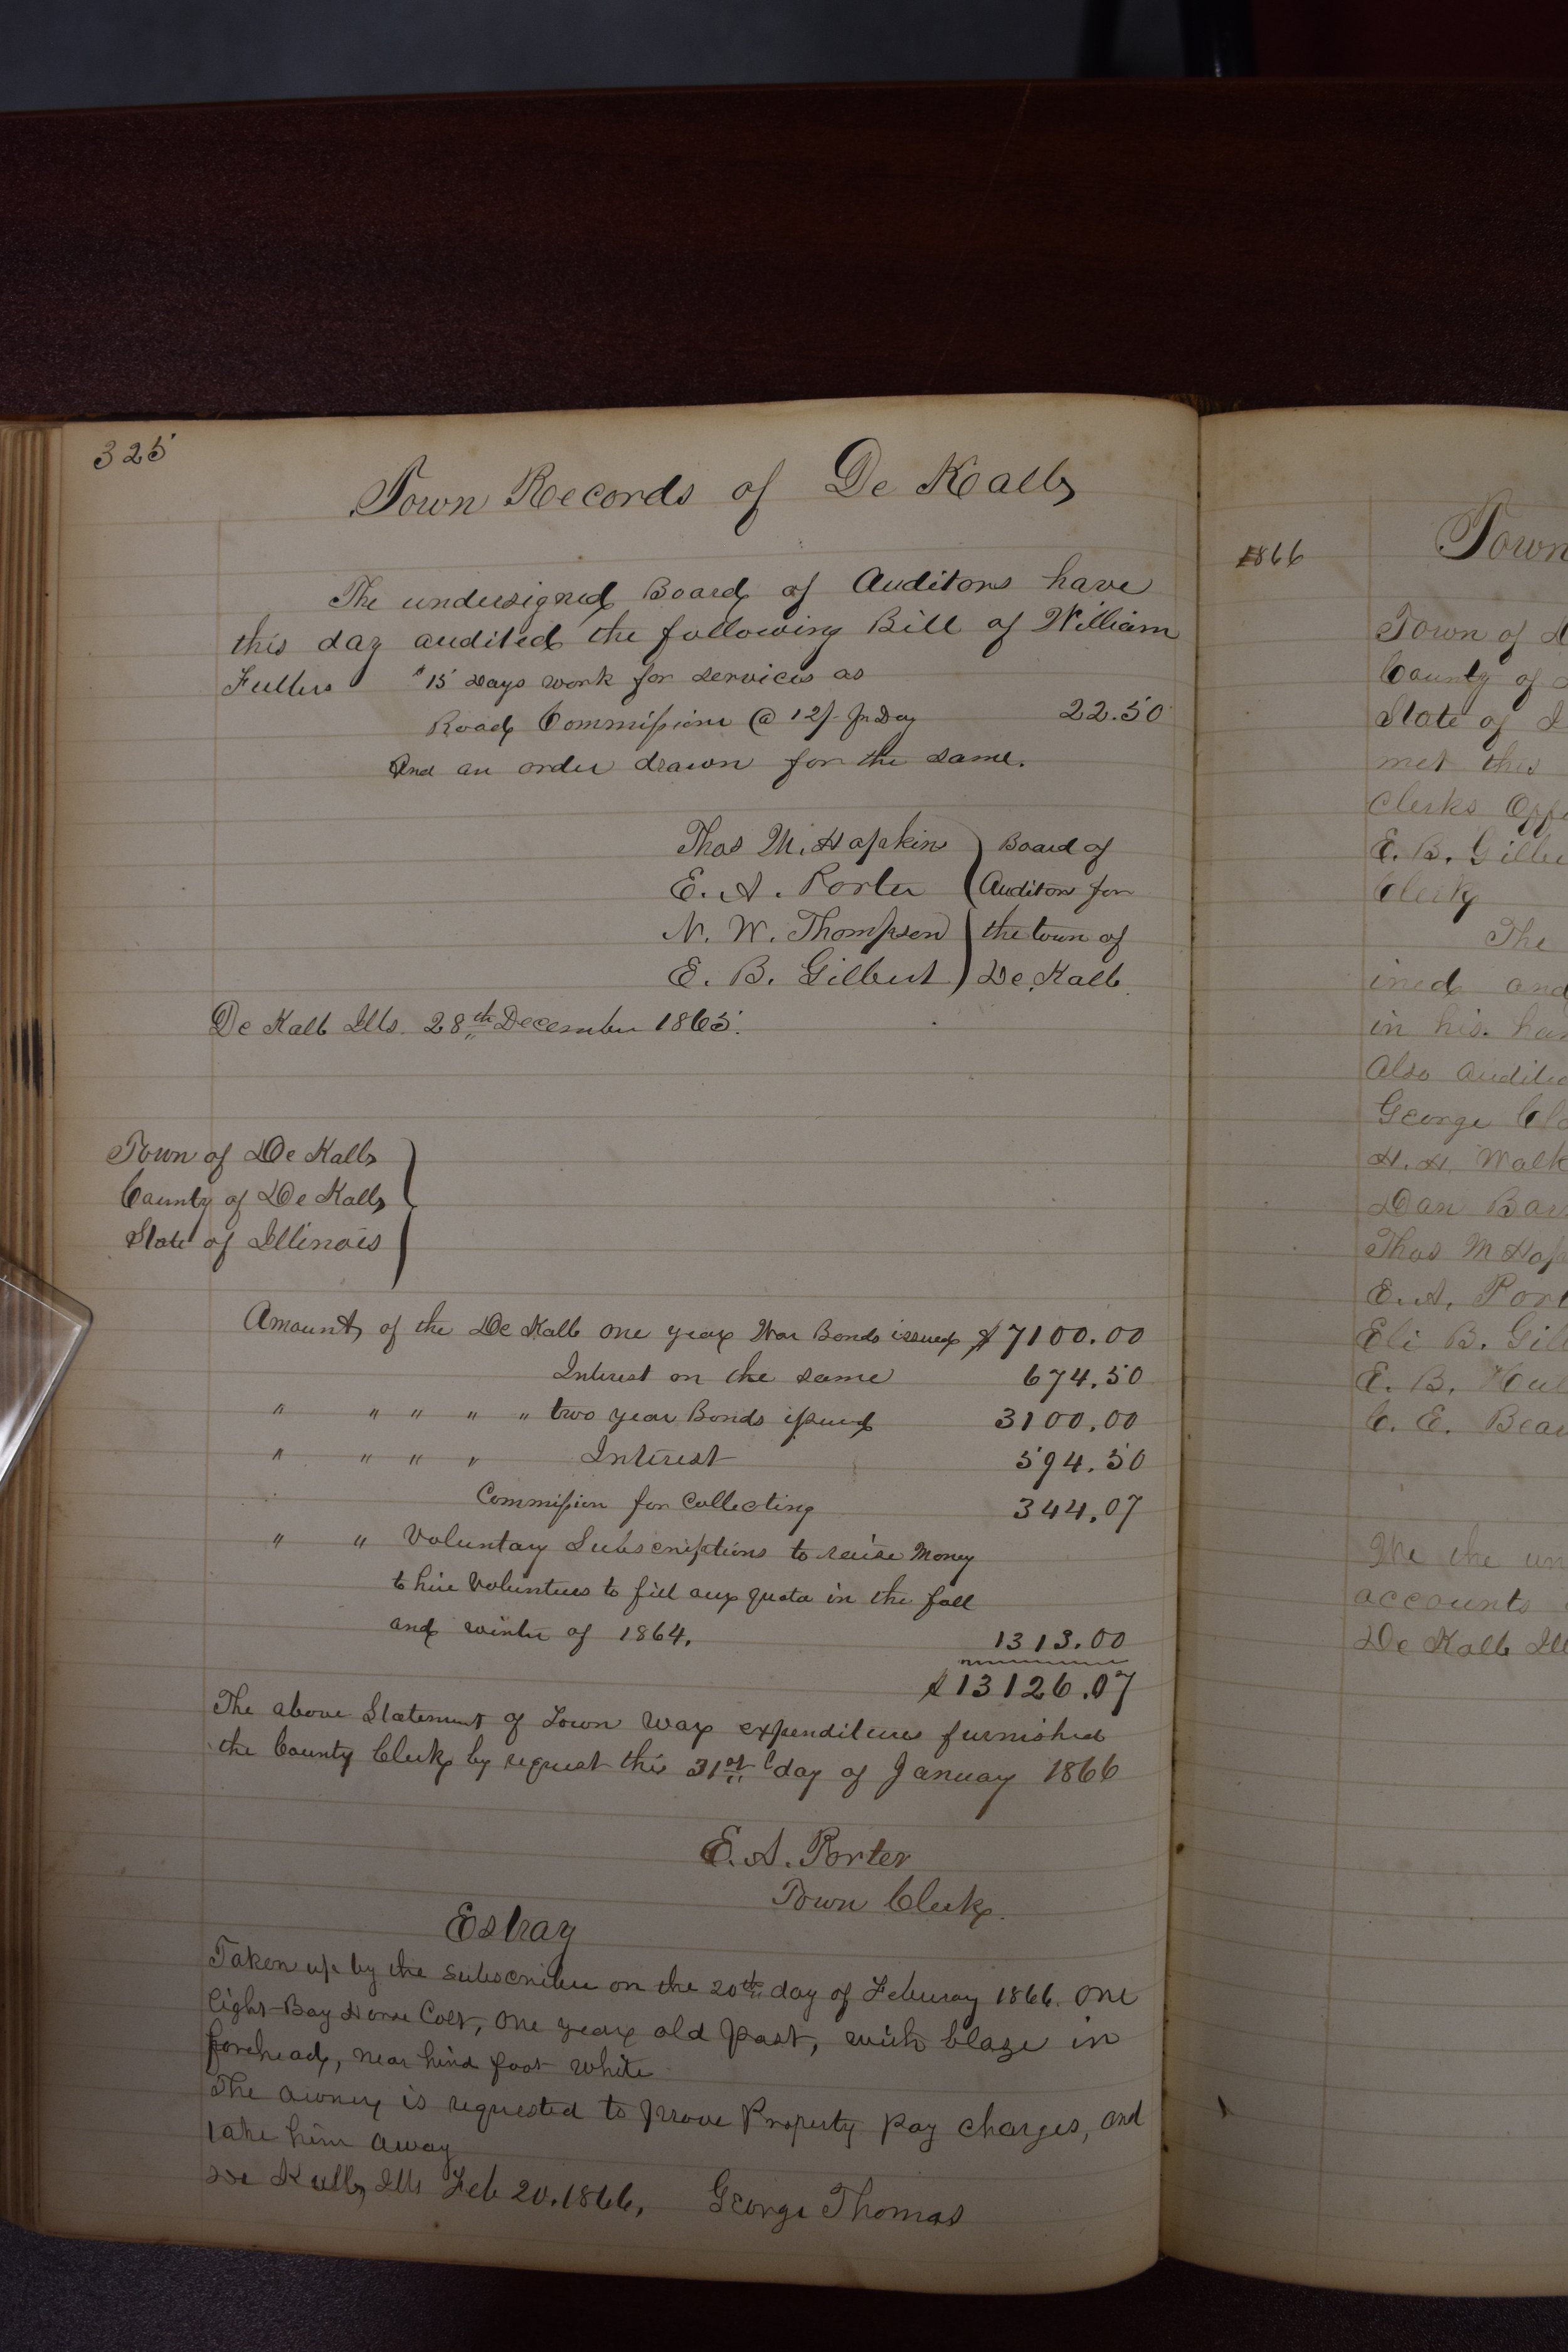 325
Town Records of De Kalb
The undersigned Board of Auditors have
this day audited the following Bill of William
Fullers " 15 days work for services as
Road Commissione @ 12/- Pr Day 22.50
And an order drawn for the same.
Thos M. Hopkins ) Board of
E. A. Porter ( Auditors for
N. W. Thompson ) the town of
E. B. Gilbert ) De Kalb
De Kalb Ills. 28th December 1865.
Town of De Kalb
County of De Kalb
State of Illinois
Amount of the De Kalb one year War Bonds issued $7100.00
Interest on the same 674.50
" " " " " two year Bonds issued 3100.00
" " " " Interest 594.50
Commission for Collecting 344.07
" " Voluntary Subscriptions to raise Money
to hire Volunteers to fill our quota in the fall
and winter of 1864. 1313.00
$13126.07
The above Statement of Town War expenditures furnished
the County Clerk by request this 31st day of January 1866
E. A. Porter
Town Clerk.
Estray
Taken up by the subscriber on the 20th day of Feburay 1866. One
light-Bay Horse Colt, one year old past, with blaze in
forehead, near hind foot white
The owner is requested to prove Property pay charges, and
take him away
De Kalb, Ills Feb 20. 1866, George Thomas
1866
Town
Town of
County of
State of
met this
Clerks
E. B.
Clerk
The
and
in his
Also
George
H. H.
Dan
Thos M
E. A.
Eli B.
E. B.
C. E.
We the
accounts
De Kalb